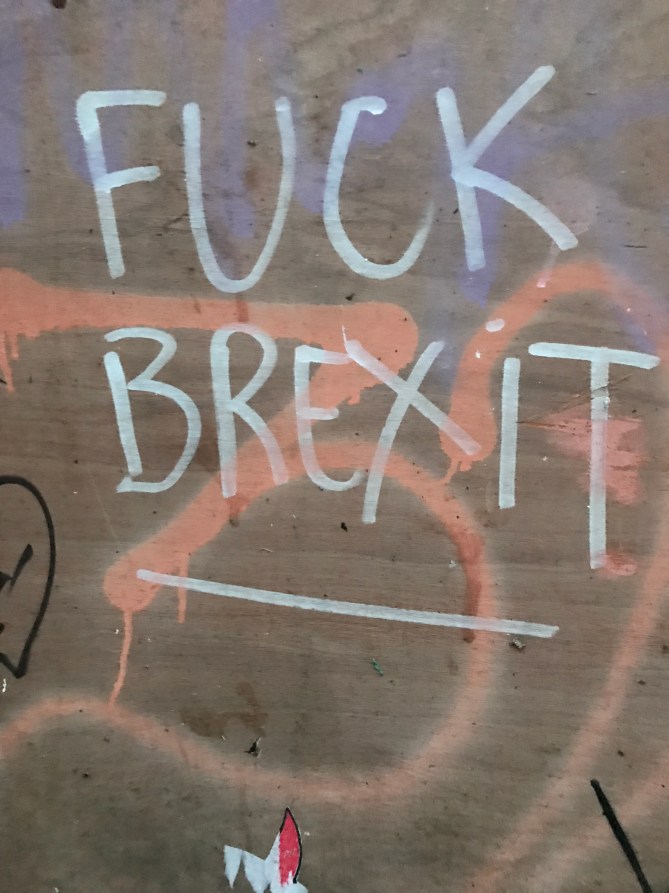 FUCK
BREXIT